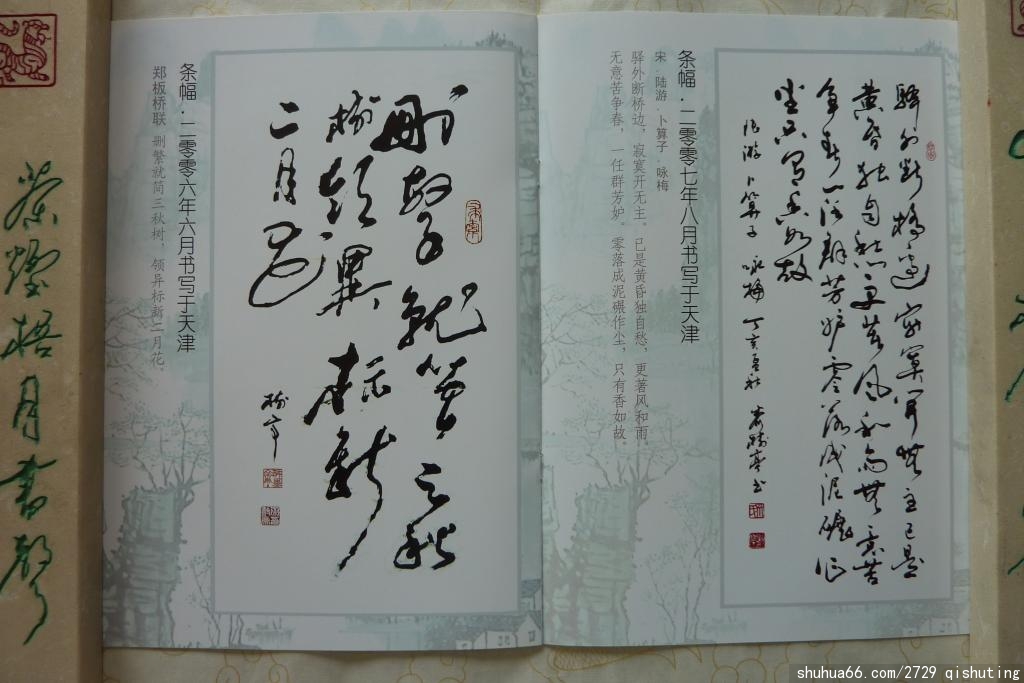 驿外断桥边寂寞開無主已是
黄昏独自愁更著风和雨無意苦
争春一任群芳妒零落成泥碾作
尘只有香如故
陆游 卜算子 咏梅 丁亥
条幅·二零零七年八月书写于天津
宋·陆游·卜算子·咏梅
驿外断桥边，寂寞开无主。已是黄昏独自愁，更著风和雨。
无意苦争春，一任群芳妒。零落成泥碾作尘，只有香如故。
删繁就简三秋
树领異标新
二月花
条幅·二零零六年六月书写于天津
郑板桥联 删繁就简三秋树，领异标新二月花。
茶煙梧月書聲
shuhua66.com/2729 qishuting